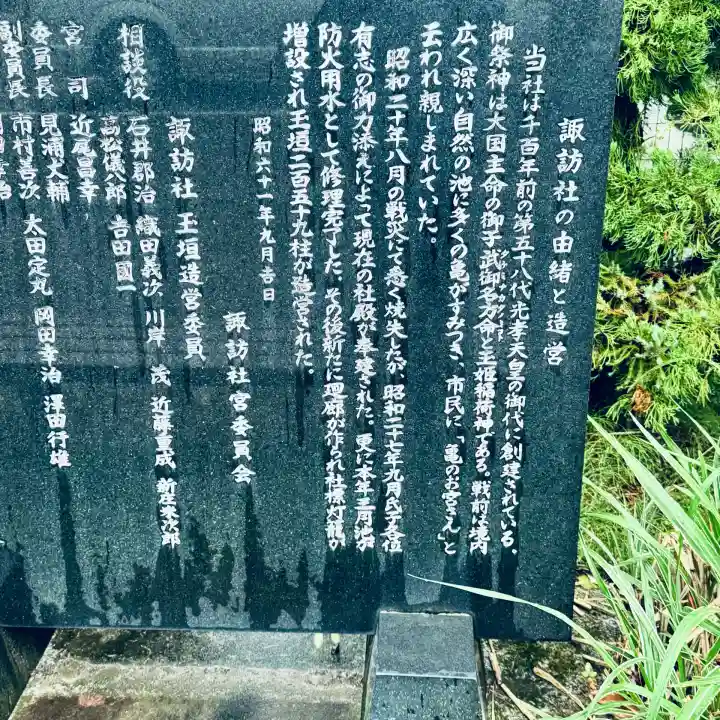 諏訪社の由緒と造営
当社は千百年前の第五十八代光孝天皇の御代に創建されている。
御祭神は大国主命の御子武御名方命と玉姫稲荷神である。戦前は境内
広く深い自然の池に多くの亀がすみつき、市民に「亀のお宮さん」と
云われ親しまれていた。
昭和二十年八月の戦災にて悉く焼失したが、昭和二十七年九月氏子各位
有志の御力添えによって現在の社殿が奉建された。更に本年三月池が
防火用水として修理完了した。その後新たに廻廊が作られ社標灯籠が
増設され玉垣二百五十九柱が造営された。
昭和六十一年九月吉日
諏訪社宮委員会
諏訪社 玉垣造営委員
相談役 石井郡治 織田義次 川岸 茂 近藤重成 新庄米次郎
高松儀八郎 吉田國一
宮司 近尾昌幸
委員長 見浦大輔
副委員長 市村善次 太田定丸 岡田幸治 澤田行雄